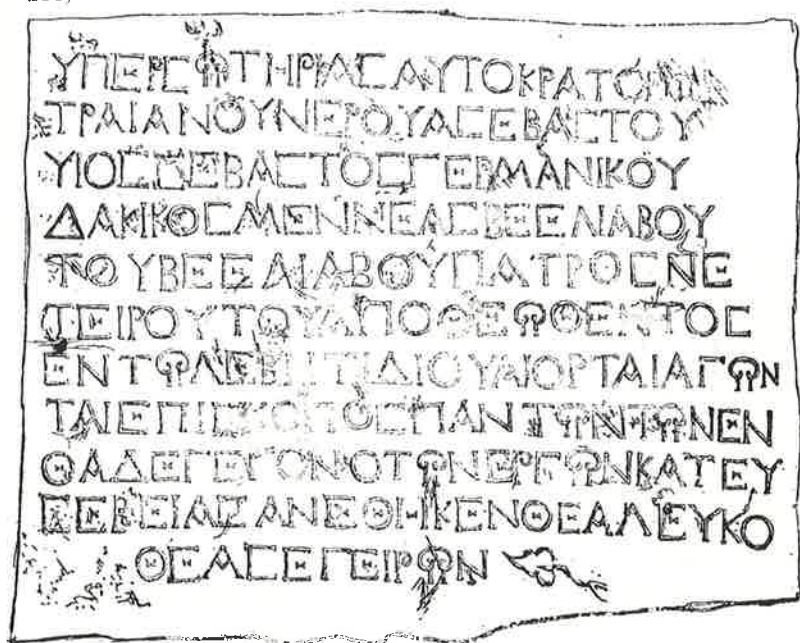 ΥΠΕΡΣΩΤΗΡΙΑΣΑΥΤΟΚΡΑΤΟΡ
ΤΡΑΙΑΝΟΥΝΕΡΟΥΑΣΕΒΑΣΤΟΥ
ΥΙΟΣΣΕΒΑΣΤΟΣΓΕΡΜΑΝΙΚΟΥ
ΔΑΚΙΚΟΣΜΕΝΝΕΑΣΒΕΕΛΙΑΒΟΥ
ΤΟΥΒΕΕΛΙΑΒΟΥΠΑΤΡΟΣΝΕ
ΤΕΙΡΟΥΤΟΥΑΠΟΘΕΩΘΕΝΤΟΣ
ΕΝΤΩΛΕΒΗΤΙΔΙΟΥΑΙΟΡΤΑΙΑΓΩΝ
ΤΑΙΕΠΙΣΚΟΠΟΣΠΑΝΤΩΝΤΩΝΕΝ
ΘΑΔΕΓΕΓΟΝΟΤΩΝΕΡΓΩΝΚΑΤΕΥ
ΣΕΒΕΙΑΣΑΝΕΘΗΚΕΝΘΕΑΛΕΥΚΟ
ΘΕΑΣΕΓΕΙΡΩΝ